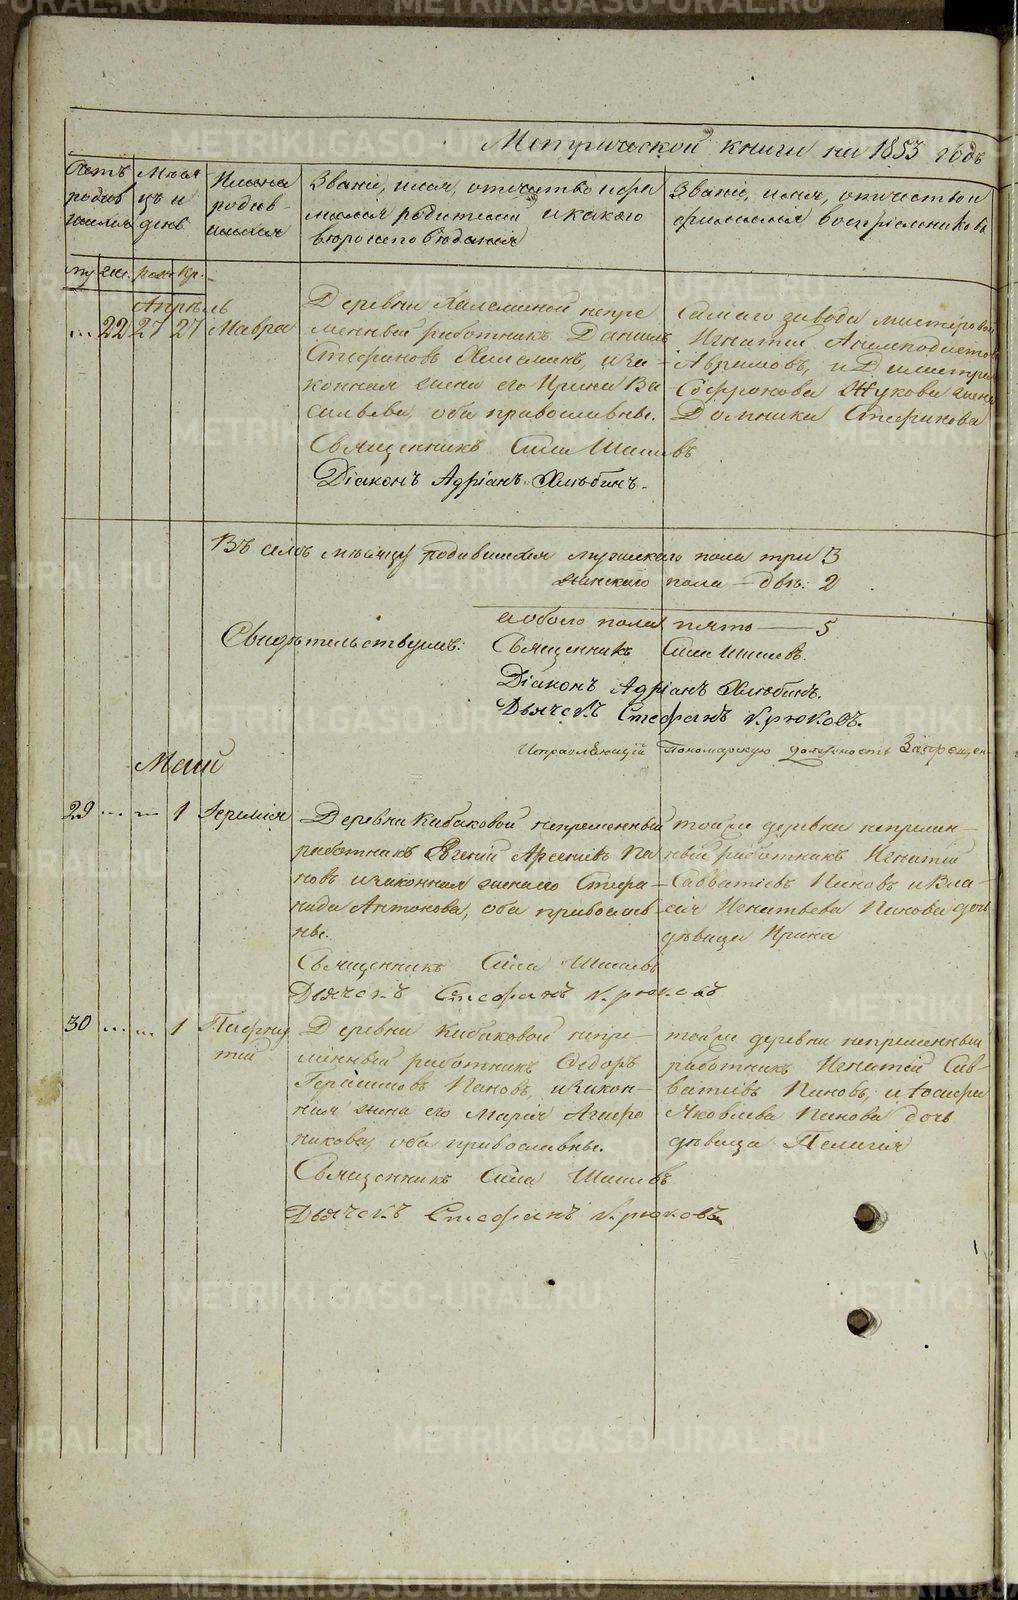 Метрической книги на 1853 годъ
Счетъ родившихся
Месяцъ и день
Имена родившихся
Званіе, имя, отчество и фамилія родителей и какого вѣроисповѣданія
Званіе, имя, отчество и фамилія воспріемниковъ
му. же. рож. кр.
Апрѣль
... 22 27 27 Мавра
Деревни Халеминой непре
менный работникъ Даніилъ
Стефановъ Халеминъ, и за
конная жена его Ирина Ва
сильева, оба православные.
Священникъ Сила Шишевъ
Діаконъ Адріанъ Хлюбинъ.
Самаго завода мастеровой
Игнатій Анемподистовъ
Авраамовъ, и Димитрія
Софронова Жукова жена
Домника Стефанова
Въ семъ мѣсяцѣ родившихся мужескаго пола три 3
женскаго пола — двѣ: 2
а обоего пола пять — 5
Свидѣтельствуемъ: Священникъ Сила Шишевъ.
Діаконъ Адріанъ Хлюбинъ.
Дьячекъ Стефанъ Крюковъ.
Исправляющій Пономарскую должность
Маій
29 ... ... 1 Іеремія
Деревни Кабаковой непременный
работникъ Евгеній Арсеніевъ Па
новъ и законная жена его Стефа
нида Антонова, оба православ
ные.
Священникъ Сила Шишевъ
Дьячекъ Стефанъ Крюковъ
тойже деревни непремен
ный работникъ Игнатій
Савватіевъ Пановъ и Вла
сія Игнатьева Панова дочь
дѣвица Ирина
30 ... ... 1 Пафну
тій
Деревни Кабаковой непре
менный работникъ Ѳедоръ
Герасимовъ Пановъ, и закон
ная жена его Марія Агаѳо
никова, оба православные.
Священникъ Сила Шишевъ
Дьячекъ Стефанъ Крюковъ
тойже деревни непременный
работникъ Игнатій Сав
ватіевъ Пановъ, и Іосифа
Яковлева Панова дочь
дѣвица Пелагія
METRIKI.GASO-URAL.RU